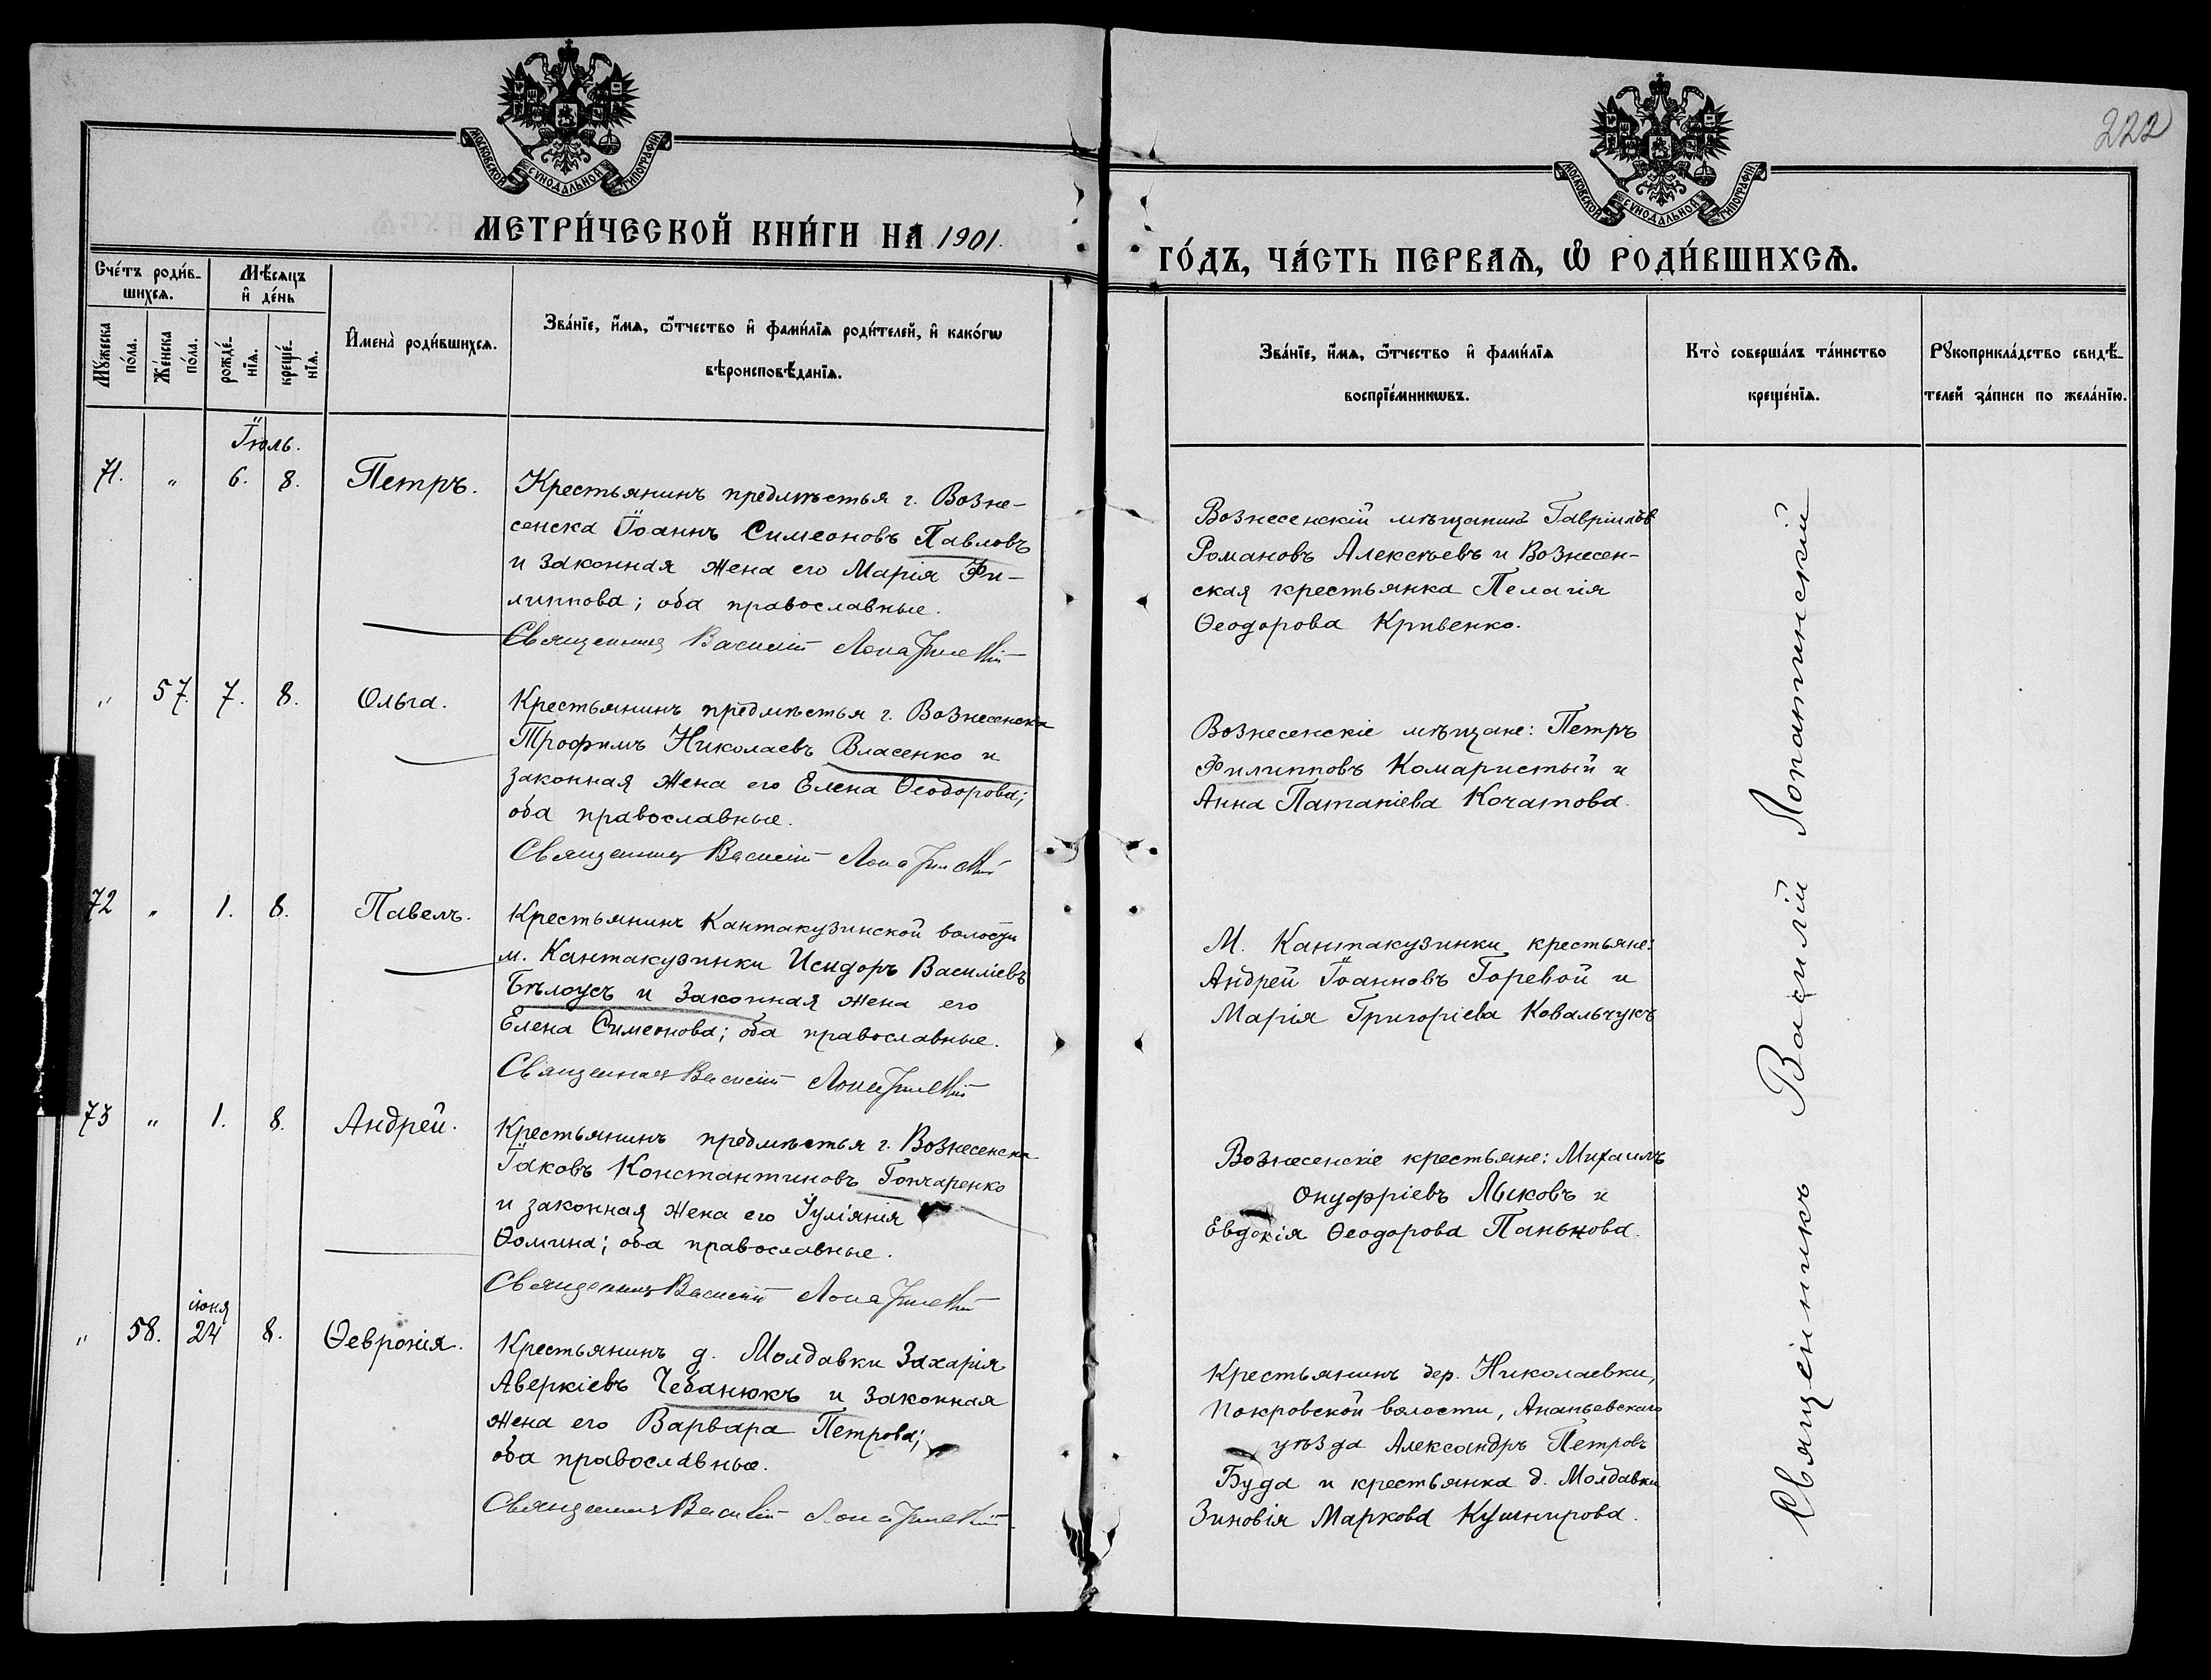 222
МОСКОВСКОЙ СѴНОДАЛЬНОЙ ТИПОГРАФІИ
МОСКОВСКОЙ СѴНОДАЛЬНОЙ ТИПОГРАФІИ
МЕТРИ́ЧЕСКОЙ КНИ́ГИ НА 1901.
ГО́ДЪ, ЧА́СТЬ ПЕРВАѦ, Ѽ РОДИ́ВШИХСѦ.
Сче́тъ роди́в-
шихсѧ.
Мѣ́сѧцъ
и҆ де́нь
Мꙋ́жеска
по́ла.
Же́нска
по́ла.
рожде́-
нїѧ.
креще́-
нїѧ.
И҆мена̀ роди́вшихсѧ.
Зва́нїе, и҆́мѧ, ѻ҆́тчество и҆ фами́лїѧ роди́телей, и҆ како́гѡ
вѣроисповѣ́данїѧ.
Зва́нїе, и҆́мѧ, ѻ҆́тчество и҆ фами́лїѧ
воспрїе́мникѡвъ.
Кто̀ соверша́лъ та́инство
креще́нїѧ.
Рꙋкоприкла́дство свидѣ́-
телей за́писи по жела́нїю.
Іюль.
71. " 6. 8. Петръ.
Крестьянинъ предмѣстья г. Возне-
сенска Іоаннъ Симеоновъ Павловъ
и законная жена его Марія Фи-
липпова; оба православные.
Священникъ Василій Лопатинскій
Вознесенскій мѣщанинъ Гавріилъ
Романовъ Алексѣевъ и Вознесен-
ская крестьянка Пелагія
Ѳеодорова Кривенко.
" 57. 7. 8. Ольга.
Крестьянинъ предмѣстья г. Вознесенска
Трофимъ Николаевъ Власенко и
законная жена его Елена Ѳеодорова;
оба православные.
Священникъ Василій Лопатинскій
Вознесенскіе мѣщане: Петръ
Филипповъ Комаристый и
Анна Кочатова.
72 " 1. 8. Павелъ.
Крестьянинъ Кантакузинской волости
м. Кантакузинки Исидоръ Василіевъ
Бѣлоусъ и законная жена его
Елена Симеонова; оба православные.
Священникъ Василій Лопатинскій
М. Кантакузинки крестьяне:
Андрей Іоанновъ Горевой и
Марія Григоріева Ковальчукъ
73 " 1. 8. Андрей.
Крестьянинъ предмѣстья г. Вознесенска
Іаковъ Константиновъ Гончаренко
и законная жена его Іуліянія
Ѳомина; оба православные.
Священникъ Василій Лопатинскій
Вознесенскіе крестьяне: Михаилъ
Онуфріевъ Лыковъ и
Евдокія Ѳеодорова Панькова.
іюня
" 58. 24 8. Ѳевронія.
Крестьянинъ д. Молдавки Захарія
Аверкіевъ Чебанюкъ и законная
жена его Варвара Петрова;
оба православные.
Священникъ Василій Лопатинскій
Крестьянинъ дер. Николаевки,
Покровской волости, Ананьевскаго
уѣзда Александръ Петровъ
Буда и крестьянка д. Молдавки
Зиновія Маркова Кушнирова.
Священникъ Василій Лопатинскій